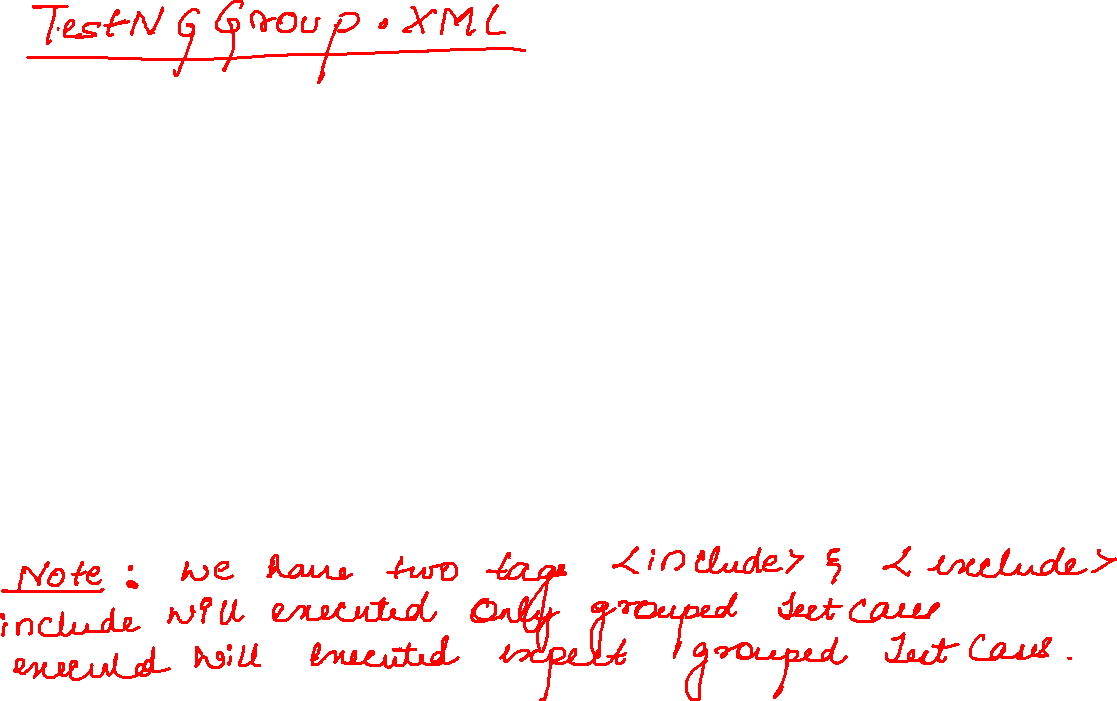 TestNG Group.XML
Note : we have two tags <include> & <exclude>
include will executed only grouped Test cases
execuld will executed expect grouped Test Cases.